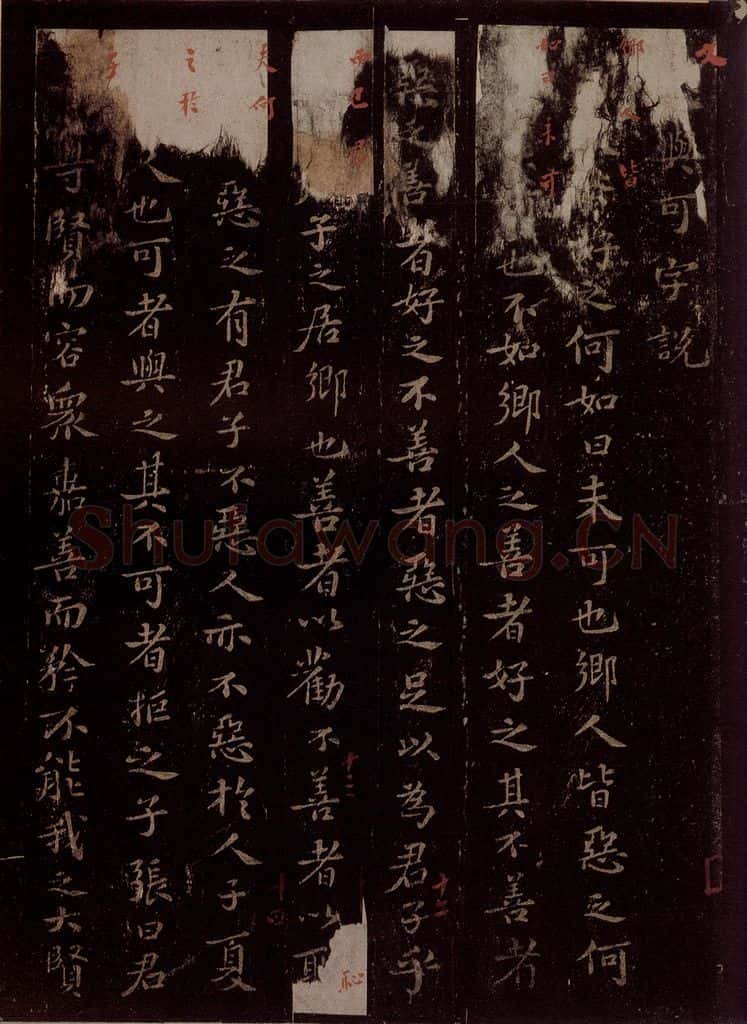 文與可字說
鄉人皆好之何如曰未可也鄉人皆惡之何
如曰未可也不如鄉人之善者好之其不善者
惡之善者好之不善者惡之足以為君子乎
而已君子之居鄉也善者以勸不善者以恥
夫何惡之有君子不惡人亦不惡於人子夏
之於人也可者與之其不可者拒之子張曰君
子尊賢而容眾嘉善而矜不能我之大賢
十二
十四
Shufawang.CN